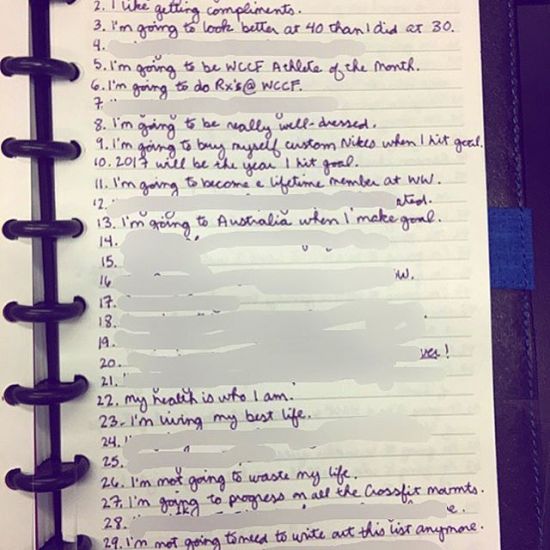 2. I like getting compliments.
3. I'm going to look better at 40 than I did at 30.
4.
5. I'm going to be WCCF Athlete of the Month.
6. I'm going to do Rx's @ WCCF.
7
8. I'm going to be really well-dressed.
9. I'm going to buy myself custom Nikes when I hit goal.
10. 2017 will be the year I hit goal.
11. I'm going to become a lifetime member at WW.
12.
13. I'm going to Australia when I make goal.
14.
15.
16
17.
18.
19.
20.
21.
22. my health is who I am.
23. I'm living my best life.
24.
25.
26. I'm not going to waste my life.
27. I'm going to progress on all the Crossfit
28.
29. I'm not going to need to write out this list anymore.